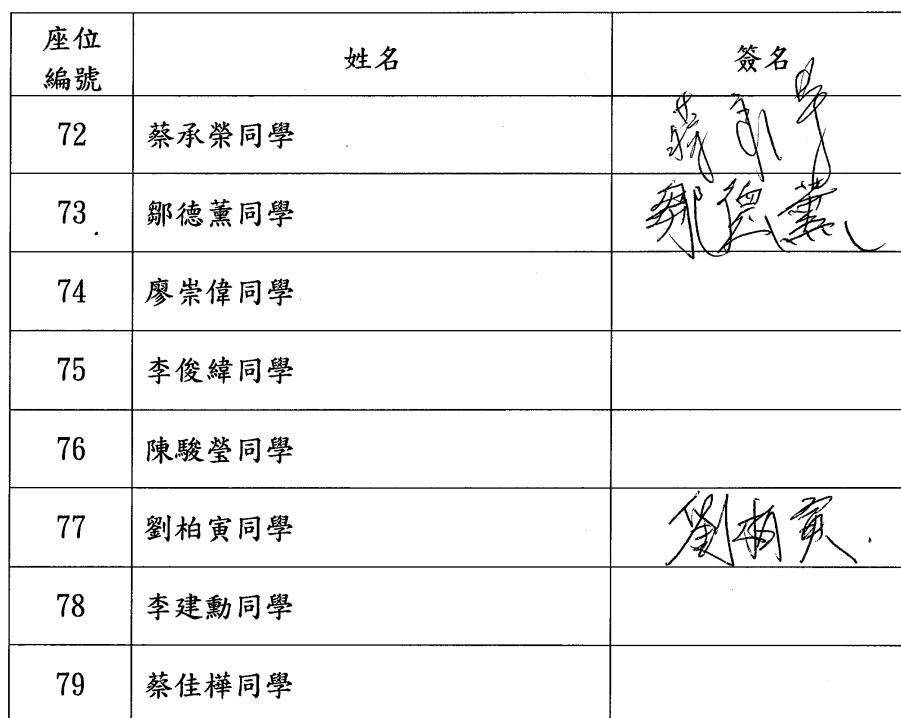 座位編號 姓名 簽名
72 蔡承榮同學
73 鄒德薫同學 鄒德薫
74 廖崇偉同學
75 李俊緯同學
76 陳駿瑩同學
77 劉柏寅同學 劉柏寅
78 李建勳同學
79 蔡佳樺同學